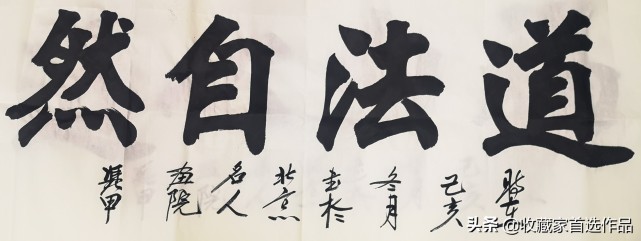 道法自然
時在己亥冬月书於北京名人画院
头条 @收藏家首选作品